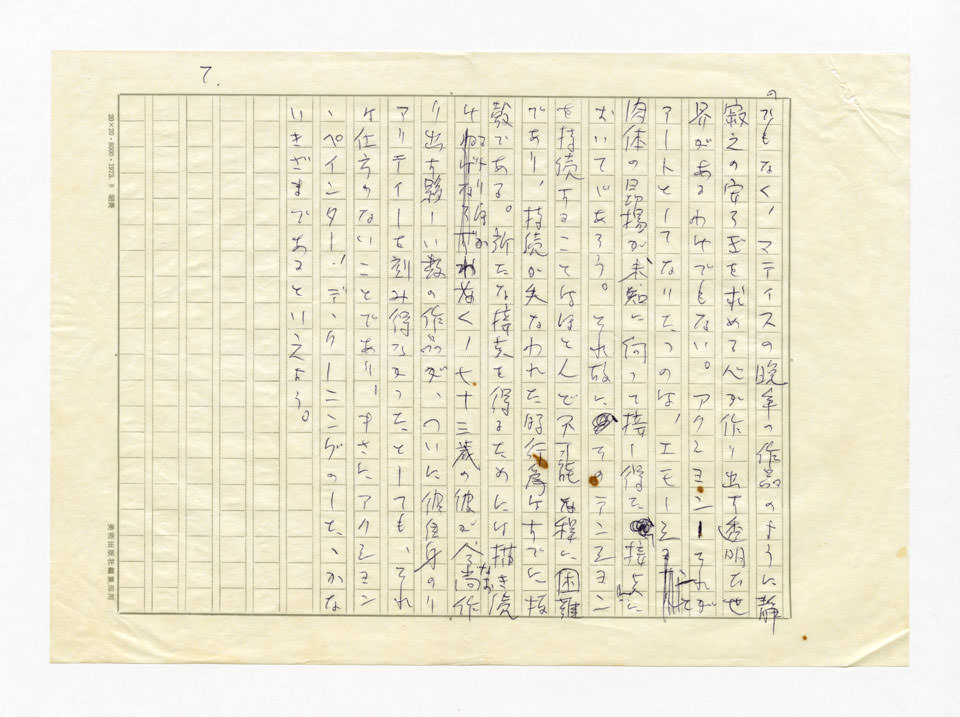 7.
のでもなく、マティスの晩年の作品のように静
寂えの安らぎを求めて心が作り出す透明な世
界があるわけでもない。アクション――それが
アートとしてなりたつのは、エモーション
肉体の現場が未知に向って接し得た接点に
おいてであろう。それ故にそのテンション
を持続することはほとんど不可能な程に困難
であり、持続が失なわれた時行為はすでに抜
殻である。新たな接点を得るためには描き続
けねばならず、七十三歳の彼が今尚なお作
り出す夥しい数の作品が、ついに彼自身のリ
アリティーを刻み得なかったとしても、それ
は仕方のないことであり、まさにアクション
・ペインター、デ・クーニングのしたたかな
いきざまであるといえよう。
20×20
美術出版社編集部用